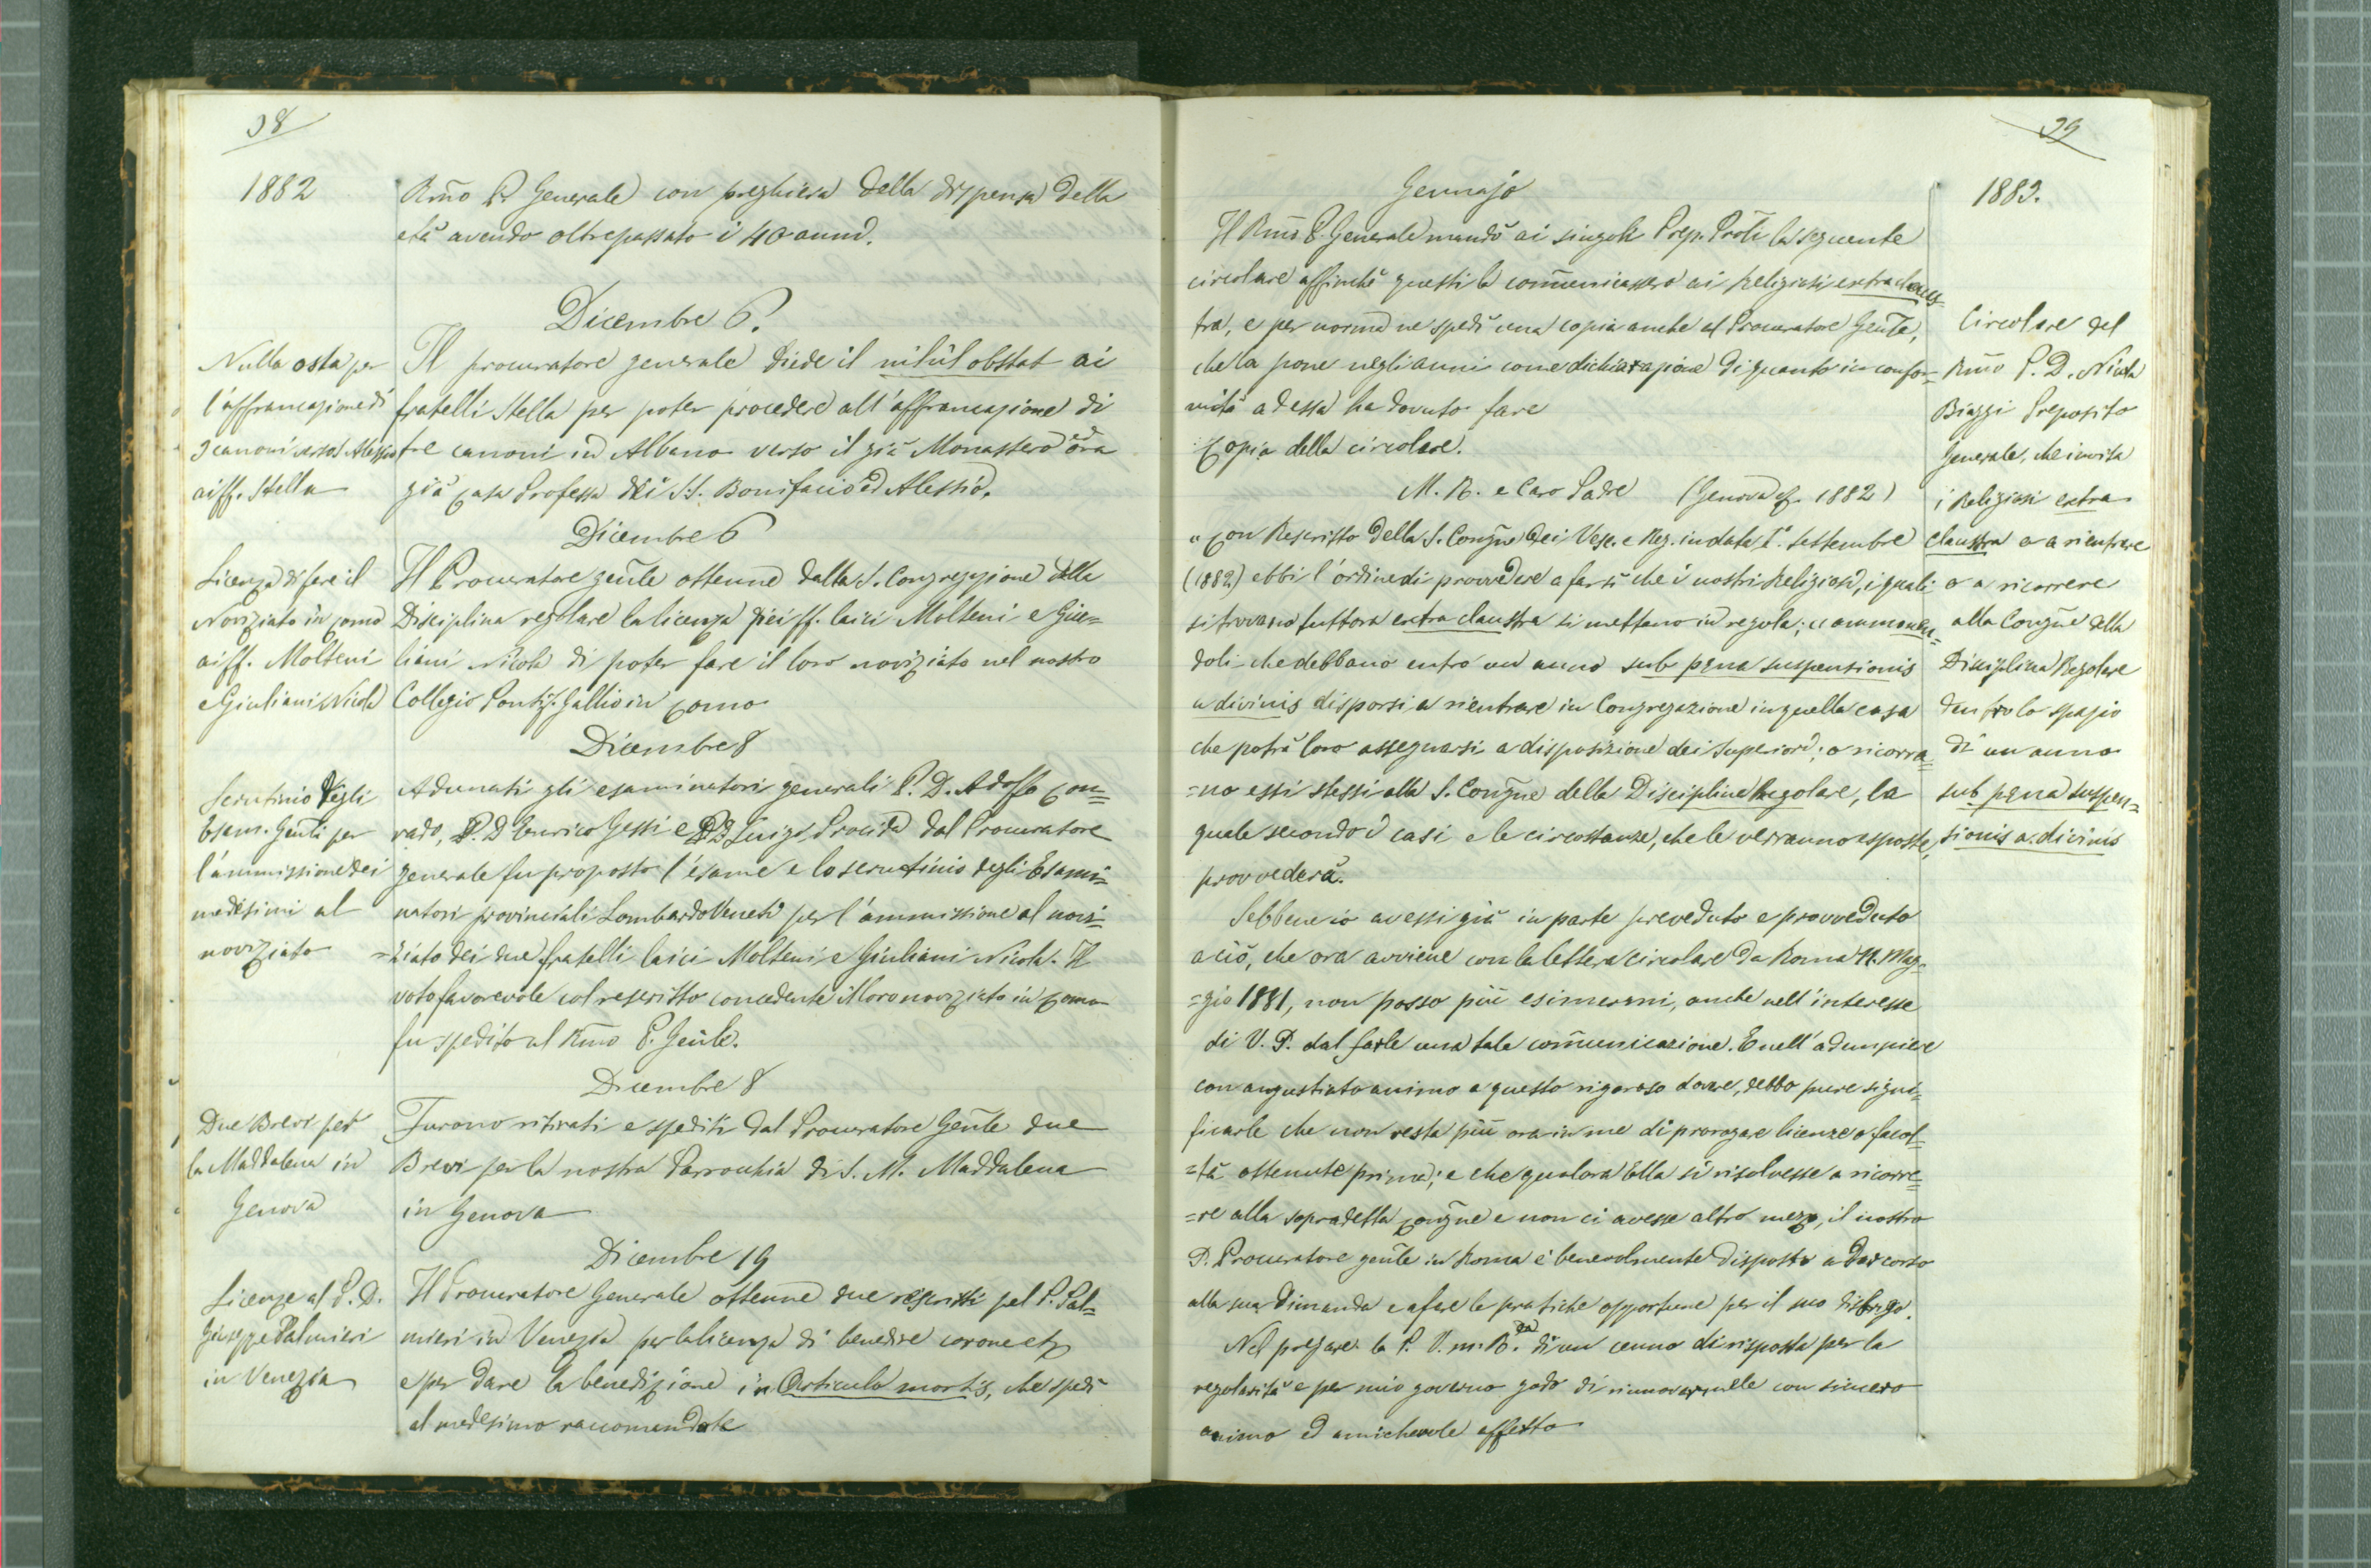 38
1882
Rm̃o P. Generale con preghiera della dispensa della
età avendo oltrepassato i 40 anni.
Dicembre 6.
Nulla osta per
l'affrancazione di
3 canoni verso Alessio
ai ff. Stella
Il procuratore generale diede il nihil obstat ai
fratelli Stella per poter procedere all'affrancazione di
tre canoni in Albano verso il già Monastero ed ora
già Casa Professa dei S.S. Bonifacio ed Alessio.
Dicembre 6
Licenza di fare il
Noviziato in Como
ai ff. Molteni
e Giuliani Nicola
Il Procuratore gen̄le ottenne dalla S. Congregazione della
Disciplina regolare la licenza pei ff. laici Molteni e Giu=
liani Nicola di poter fare il loro noviziato nel nostro
Collegio Pontif. Gallio in Como
Dicembre 8
Scrutinio degli
Esam. Gen̄li per
l'ammissione dei
medesimi al
noviziato
Adunati gli esaminatori generali P. D. Adolfo Con=
rado, P. D. Enrico Gessi e P. D. Luigi Procida dal Procuratore
generale fu proposto l'esame e lo scrutinio degli Esami=
natori provinciali Lombardo Veneti per l'ammissione al novi=
=ziato dei due fratelli laici Molteni e Giuliani Nicola. Il
voto favorevole col rescritto concedente il loro noviziato in Como
fu spedito al Rmo P. Gen̄le.
Dicembre 8
Due Brevi per
la Maddalena in
Genova
Furono ritirati e spediti dal Procuratore Gen̄le due
Brevi per la nostra Parrochia di S. M. Maddalena
in Genova
Dicembre 19
Licenze al P. D.
Giuseppe Palmieri
in Venezia
Il Procuratore Generale ottenne due rescritti pel P. Pal=
mieri in Venezia per la licenza di benedire corone etc
e per dare la benedizione in Articulo mortis, che spedì
al medesimo raccomandate
39
1883.
Gennajo
Il Rm̃o P. Generale mandò ai singoli Prep. Prōli la seguente
circolare affinchè questi la com̃unicassero ai Religiosi extra claus=
tra, e per norma ne spedì una copia anche al Procuratore Gen̄le,
che la pone negli anni come dichiarazione di quanto in confor=
mità ad essa ha dovuto fare
Copia della circolare.
M. R. e Caro Padre (Genova 1882)
" Con Rescritto della S. Congñe dei Vesc. e Reg. in data 1°. settembre
(1882) ebbi l'ordine di provvedere a far sì che i nostri Religiosi, i quali
si trovano tuttora extra claustra si mettano in regola; ammonen=
doli che debbano entro un anno sub pęna suspensionis
a divinis disporsi a rientrare in Congregazione in quella casa
che potrà loro assegnarsi a disposizione dei Superiori; o ricorra=
=no essi stessi alla S. Congñe della Disciplina Regolare, la
quale secondo i casi e le circostanze, che le verranno esposte,
provvederà.
Sebbene io avessi già in parte preveduto e provveduto
a ciò, che ora avviene con la lettera circolare da Roma 11. Mag=
=gio 1881, non posso più esimermi, anche nell'interesse
di V. P. dal farle una tale com̃unicazione. E nell'adempiere
con angustiato animo a questo rigoroso dovere, debbo pure signi=
ficarle che non resta più ora in me di prorogare licenze o facol=
=tà ottenute prima; e che qualora Ella si risolvesse a ricorre=
=re alla sopradetta Congñe e non ci avesse altro mezzo, il nostro
P. Procuratore gen̄le in Roma è benevolmente disposto a dar corso
alla sua dimanda e a fare le pratiche opportune per il suo disbrigo.
Nel pregare la P. V. m. R.da di un cenno di risposta per la
regolarità e per mio governo godo di rinnovarmele con sincero
animo ed amichevole affetto
Circolare del
Rm̃o P. D. Nicola
Biaggi Preposito
Generale, che invita
i Religiosi extra
claustra o a rientrare
o a ricorrere
alla Congñe della
Disciplina Regolare
dentro lo spazio
di un anno
sub pęna suspen=
sionis a divinis